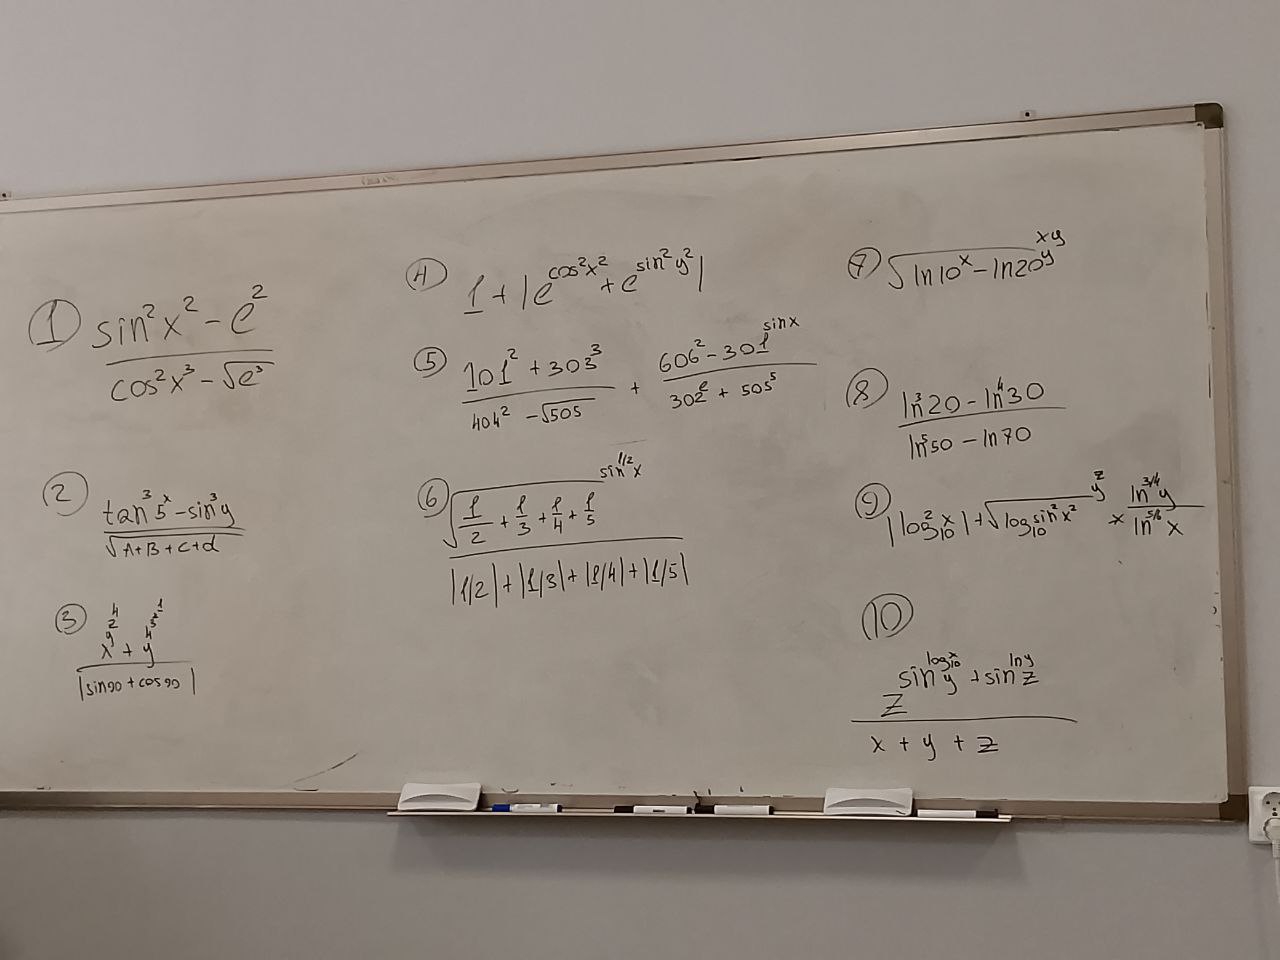 ① (sin²x² - e²) / (cos²x³ - √(e³))
② (tan³5ˣ - sin³y) / √(A+B+C+d)
③ (x^(y^(z^4)) + y^(4^(3^(2^1)))) / |sin90 + cos90|
④ 1 + |e^(cos²x²) + e^(sin²y²)|
⑤ (101² + 303³) / (404² - √505) + (606² - 301^(sinx)) / (302^e + 505⁵)
⑥ √(1/2 + 1/3 + 1/4 + 1/5)^(sin^(1/2)x) / (|1/2| + |1/3| + |1/4| + |1/5|)
⑦ √(ln10ˣ - ln20^(y^(xy)))
⑧ (ln³20 - ln⁴30) / (ln⁵50 - ln70)
⑨ |log²₁₀x| + √(log₁₀ sin²x²)^(y^z) × (ln^(3/4)y) / (ln^(5/6)x)
⑩ z^(sin y^(log₁₀x) + sin z^(lny)) / (x + y + z)